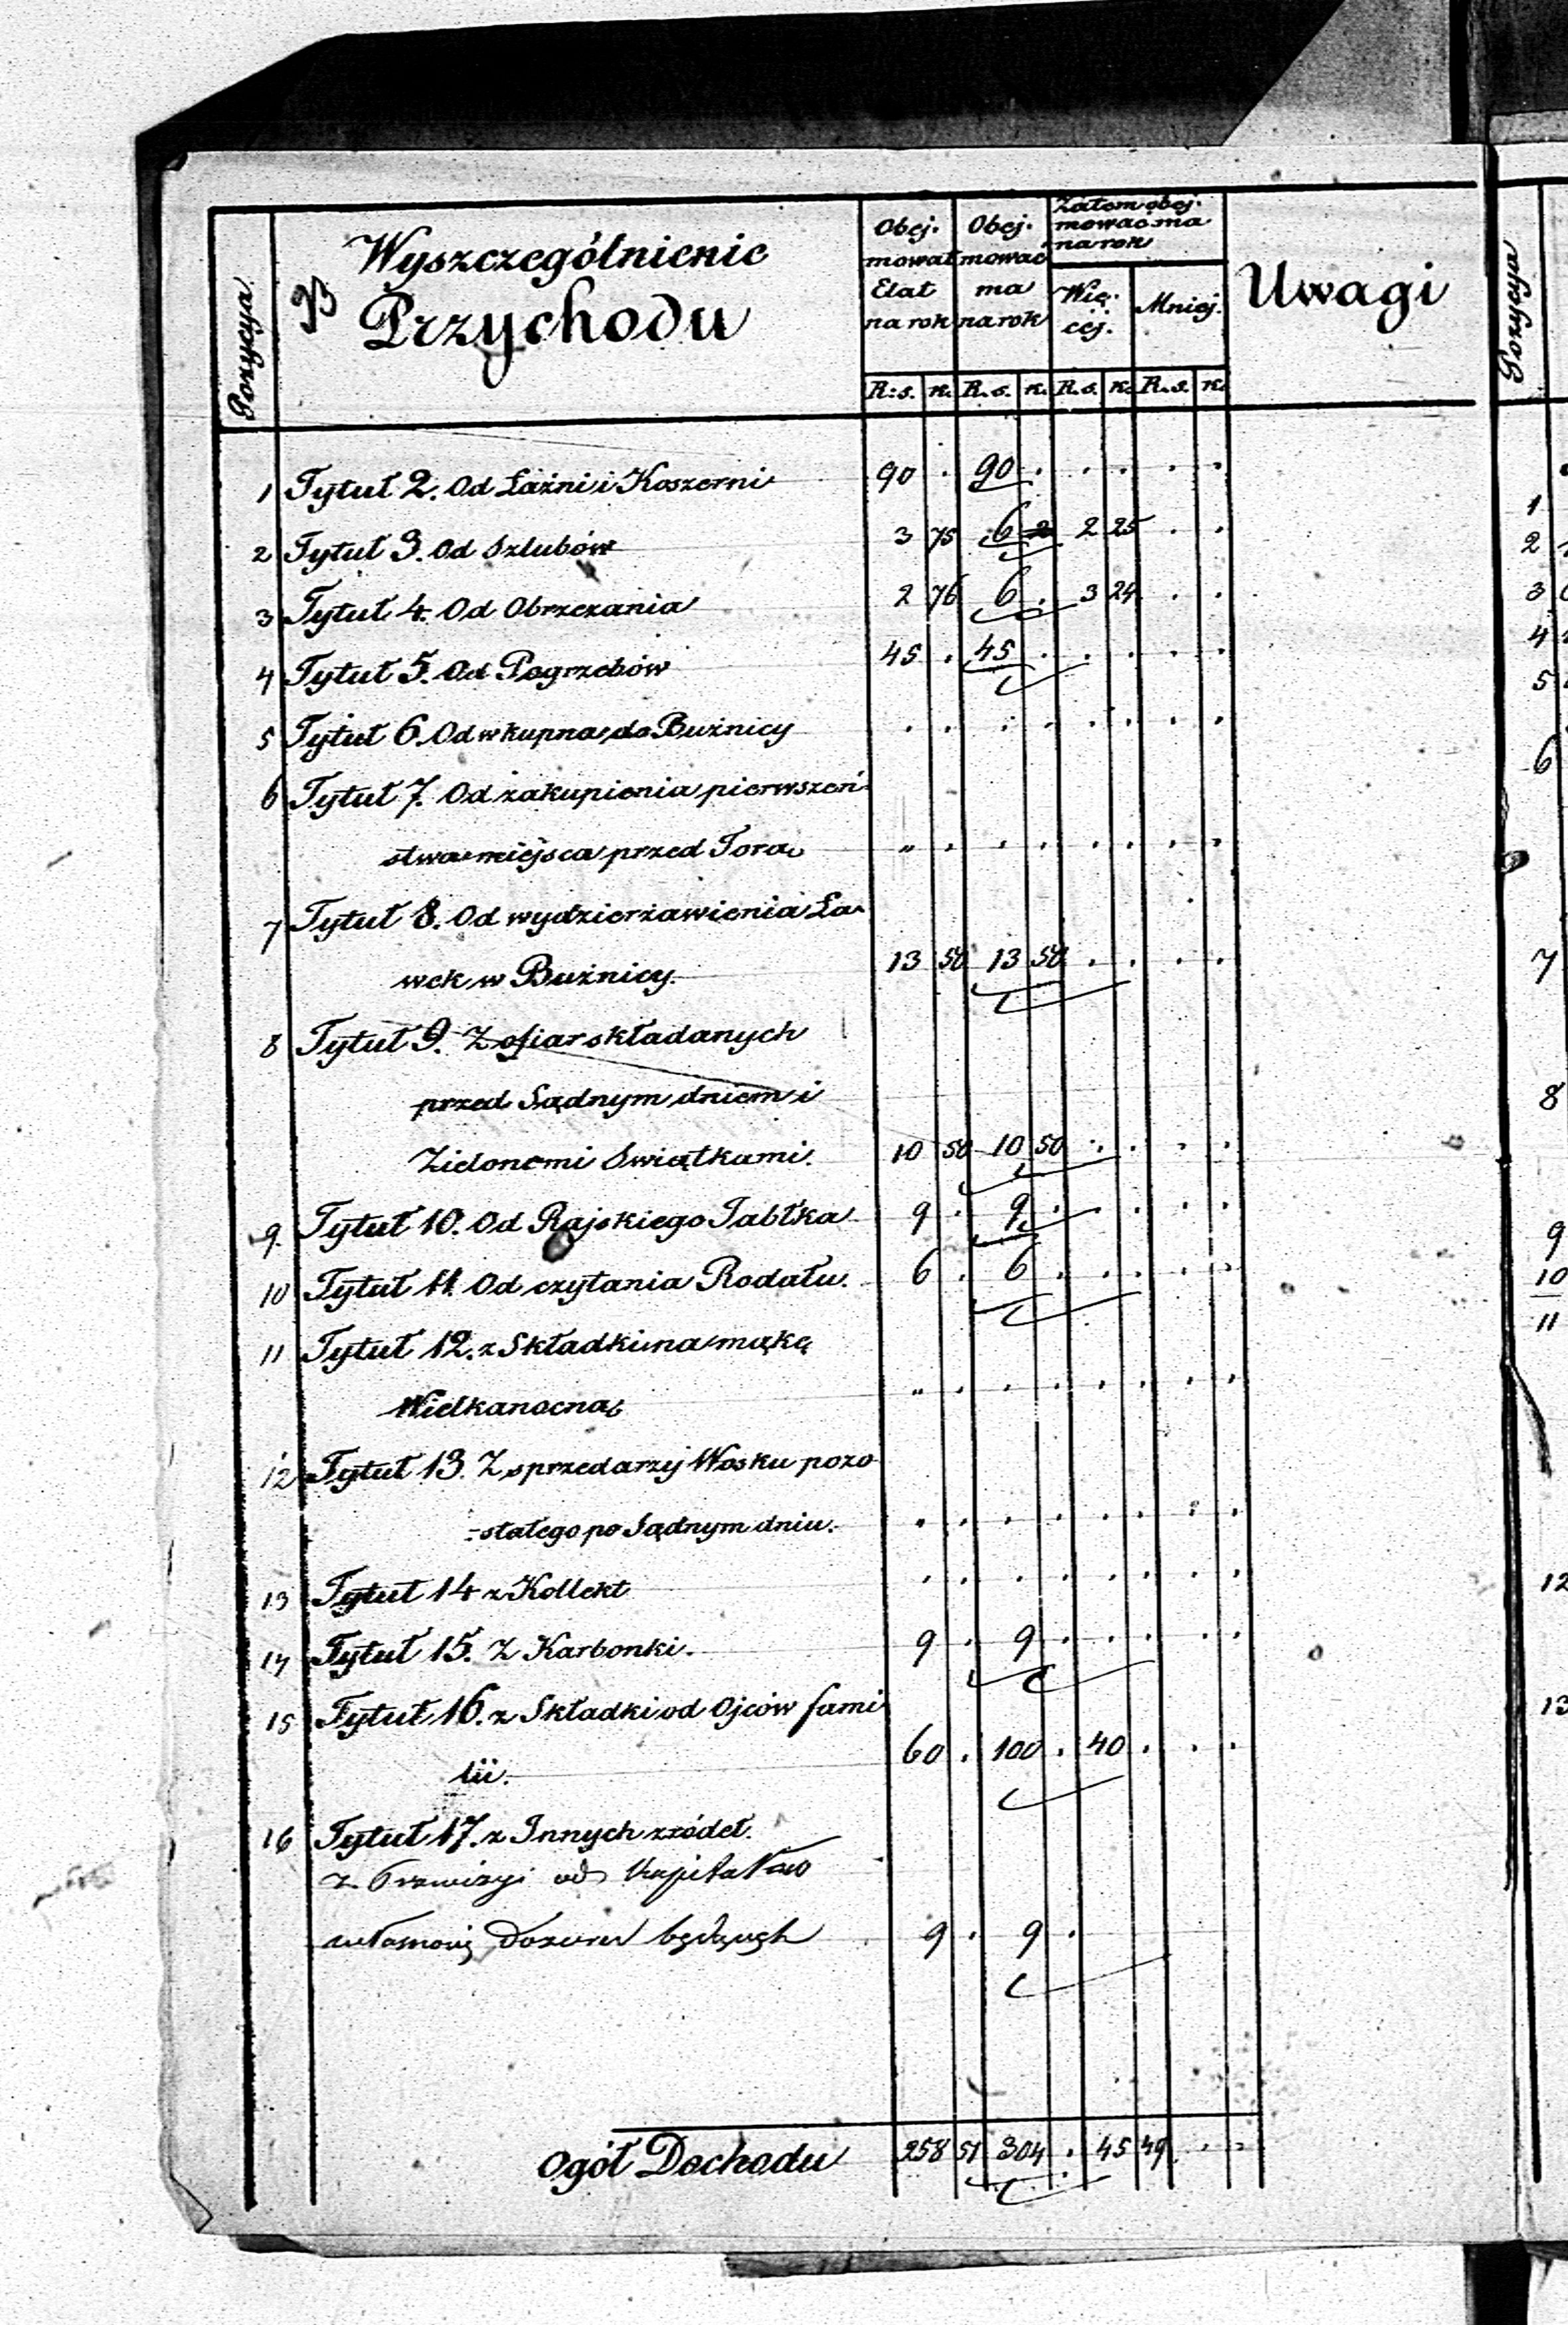 Pozycya
B
Wyszczególnienie
Przychodu
Obej-
mował
Etat
na rok
Obej-
mować
ma
na rok
Zatem obej-
mować ma
na rok
Wię-
cej.
Mniej.
Uwagi
R:s. k. R.s. k. R.s. k. R.s. k.
1 Tytuł 2. Od Łaźni i Koszerni 90 . 90 . . . . .
2 Tytuł 3. Od Szlubów 3 75 6 2 25 . .
3 Tytuł 4. Od Obrzezania 2 76 6 . 3 24 . .
4 Tytuł 5. Od Pogrzebów 45 . 45 . . . . .
5 Tytuł 6. Od wkupna do Bużnicy . . . . . . . .
6 Tytuł 7. Od zakupienia pierwszeń-
stwa miejsca przed Torą „ . . . . . . .
7 Tytuł 8. Od wydzierżawienia Ła-
wek w Bużnicy. 13 50 13 50 . . . .
8 Tytuł 9. Z ofiar składanych
przed Sądnym dniem i
Zielonemi Swiątkami. 10 50 10 50 . . . .
9. Tytuł 10. Od Rajskiego Jabłka 9 . 9 . . . . .
10 Tytuł 11. Od czytania Rodału. 6 . 6 . . . . .
11 Tytuł 12. z Składki na mąkę
Wielkanocną „ . . . . . . .
12 Tytuł 13. Z sprzedarzy Wosku pozo-
-stałego po Sądnym dniu. . . . . . . . .
13 Tytuł 14 z Kollekt . . . . . . . .
14 Tytuł 15. Z Karbonki. 9 . 9 . . . . .
15 Tytuł 16. z Składki od Ojców fami
lii. 60 . 100 . 40 . . .
16 Tytuł 17. z Innych zródeł.
z Prowizyi od Kapitałów
własnością Dozoru będących 9 . 9 .
Ogół Dochodu 258 51 304 . 45 49 . .
Pozycya
1
2
3
4
5
6
7
8
9
10
11
12
13